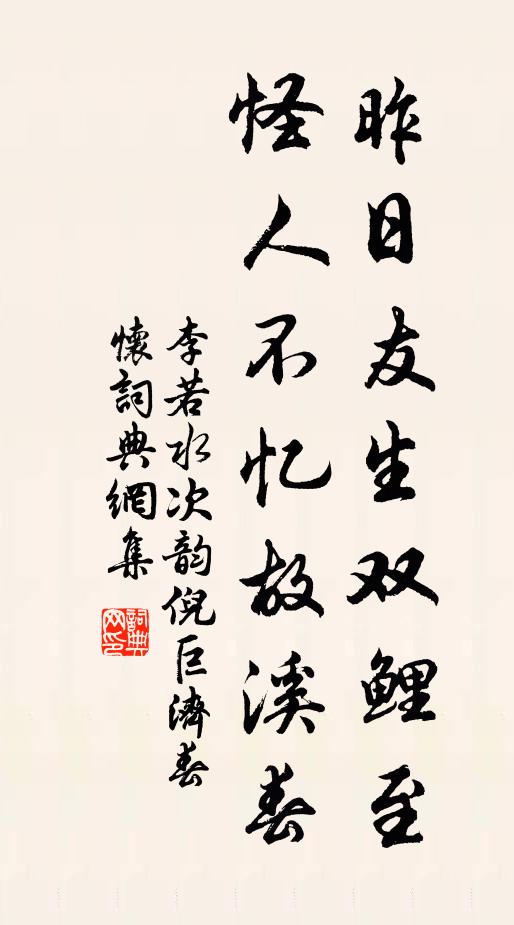 昨日友生双鲤至
怪人不忆故溪春
李若水次韵倪巨濟春
懷詞典網集
詞典网印